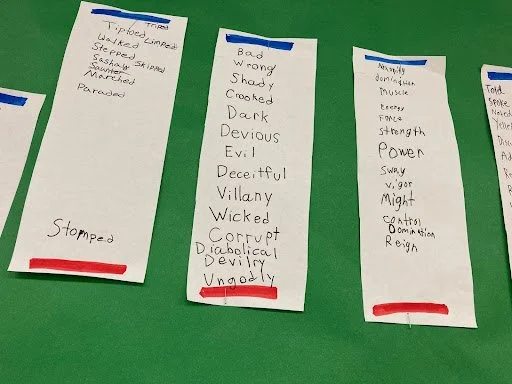 Triped
Tiptoed Limped
Walked
Stepped
Sashay Skipped
Saunter
Marched
Paraded
Stomped
Bad
Wrong
Shady
Crooked
Dark
Devious
Evil
Deceitful
Villany
Wicked
Corrupt
Diabolical
Devilry
Ungodly
Muscle
Energy
Force
Strength
Power
Sway
Vigor
Might
Control
Domination
Reign
Told
Spoke